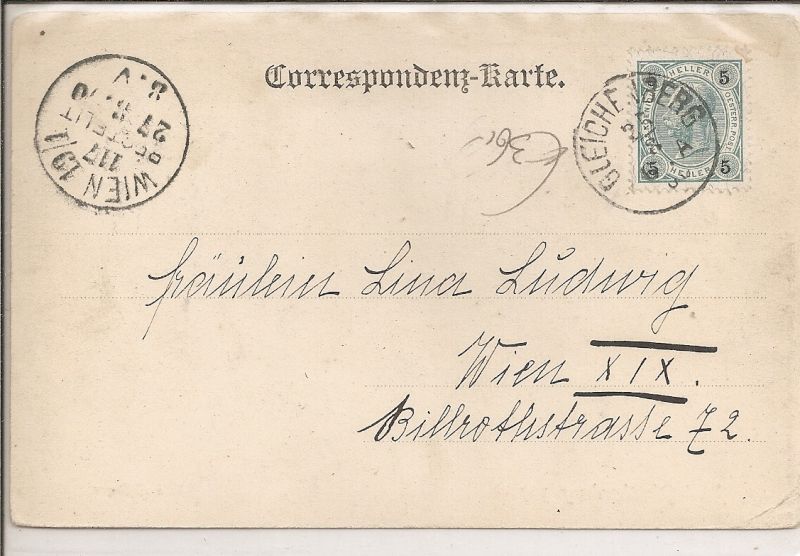 Correspondenz-Karte.
5 HELLER 5
OESTERR. POST
5 HELLER 5
GLEICHENBERG
WIEN 19/1
117
BESTELLT
27
8. V
Fräulein Lina Ludwig
Wien XIX.
Billrothstrasse 72.